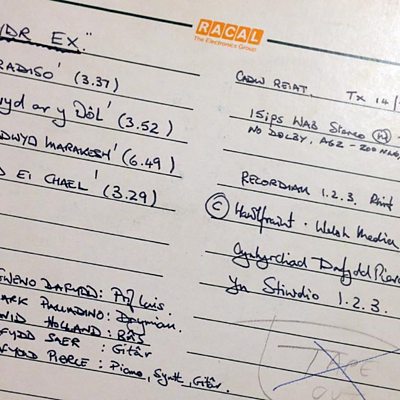 RACAL
The Electronics Group
NDR EX."
RADISO' (3.37)
wyd ar y Ddôl' (3.52)
DWYD MARAKESH' (6.49)
D EI CHAEL' (3.29)
GWENO DAFYDD: Prif Lais.
ARK PULLADINO: Drymiau.
VID HOLLAND: BAS
FYDD SAER : Gitâr
FYDD PIERCE: Piano, Synth, Gitâr.
CADW REIAT. Tx 14/
15ips NAB Stereo
NO DOLBY, AGZ - 200
RECORDIAU 1.2.3.
© Hawlfraint . Welsh Media
Cynhyrchiad Dafydd Pierce
Yn Stiwdio 1.2.3.
TAPE
OUT